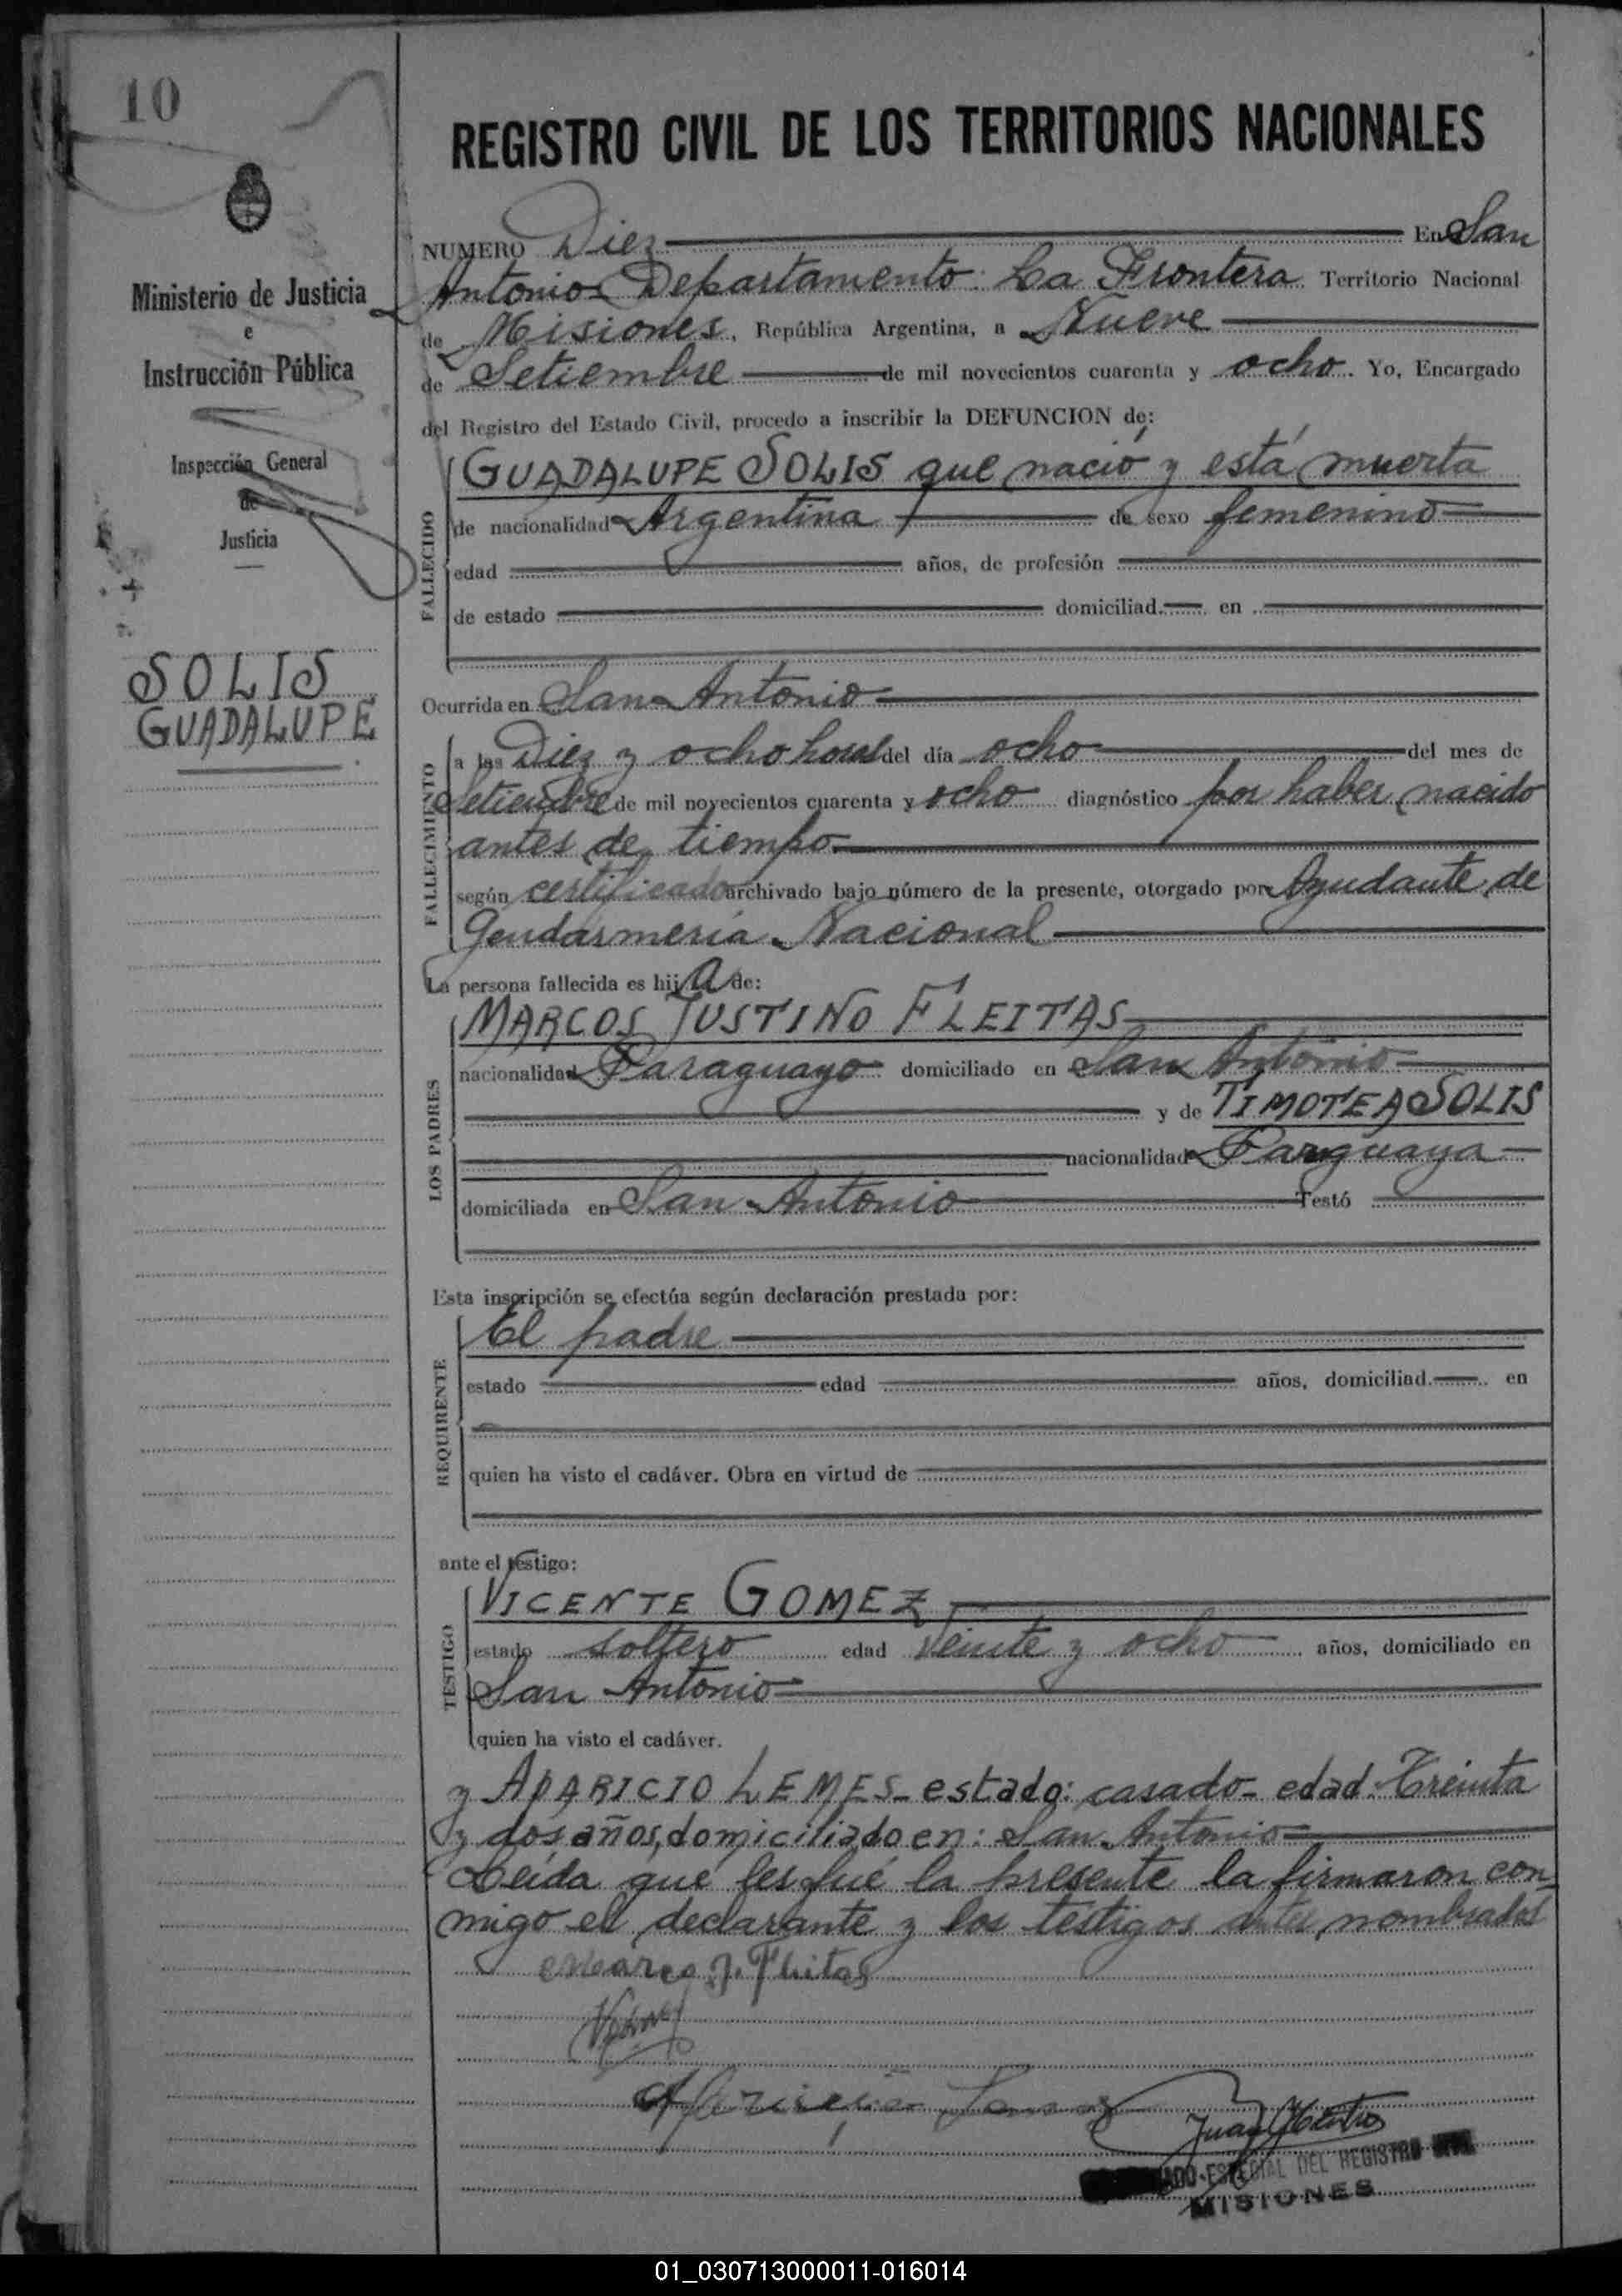 10
Ministerio de Justicia
e
Instrucción Pública
Inspección General
de
Justicia
SOLIS
GUADALUPE
REGISTRO CIVIL DE LOS TERRITORIOS NACIONALES
NUMERO Diez En San
Antonio Departamento La Frontera Territorio Nacional
de Misiones, República Argentina, a Nueve
de Setiembre de mil novecientos cuarenta y ocho. Yo, Encargado
del Registro del Estado Civil, procedo a inscribir la DEFUNCION de:
FALLECIDO
GUADALUPE SOLIS que nació y está muerta
de nacionalidad Argentina de sexo femenino
edad años, de profesión
de estado domiciliad en
Ocurrida en San Antonio
FALLECIMIENTO
a las Diez y ocho horas del día ocho del mes de
Setiembre de mil novecientos cuarenta y ocho diagnóstico por haber nacido
antes de tiempo
según certificado archivado bajo número de la presente, otorgado por Ayudante de
Gendarmería Nacional
La persona fallecida es hija de:
LOS PADRES
MARCOS JUSTINO FLEITAS
nacionalidad Paraguayo domiciliado en San Antonio
y de TIMOTEA SOLIS
nacionalidad Parguaya
domiciliada en San Antonio Testó
Esta inscripción se efectúa según declaración prestada por:
REQUIRENTE
El padre
estado edad años, domiciliad en
quien ha visto el cadáver. Obra en virtud de
ante el testigo:
TESTIGO
VICENTE GOMEZ
estado soltero edad Veinte y ocho años, domiciliado en
San Antonio
quien ha visto el cadáver.
y APARICIO LEMES - estado: casado - edad: Treinta
y dos años, domiciliado en: San Antonio
Leída que les fué la presente la firmaron con
migo el declarante y los testigos antes nombrados
Marco J. Fleitas
ESPECIAL DEL REGISTRO
MISIONES
01_030713000011-016014